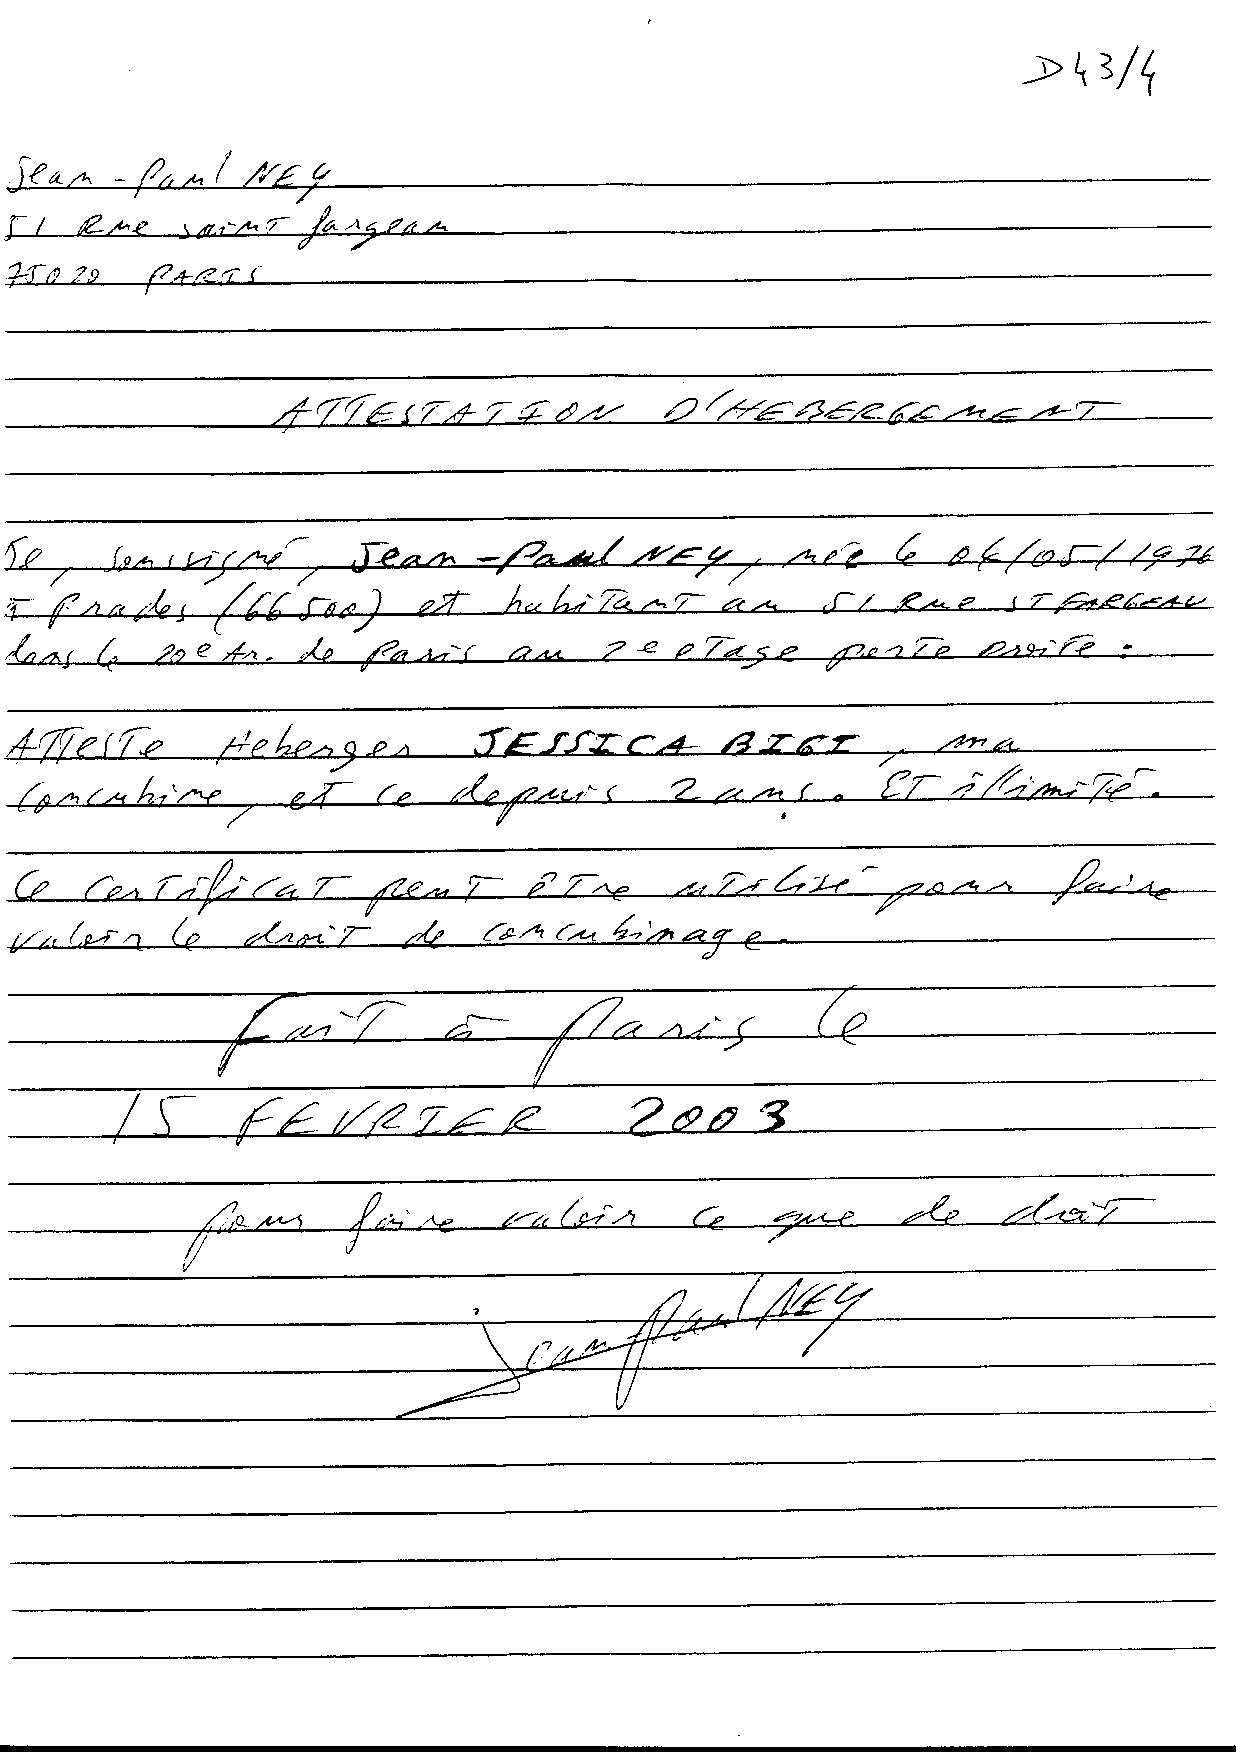 D43/4
Jean-Paul NEY
51 Rue saint fargeau
75020 PARIS
ATTESTATION D'HEBERGEMENT
Je, soussigné, Jean-Paul NEY, née le 04/05/1976
à Prades (66500) et habitant au 51 Rue ST FARGEAU
dans le 20e Ar. de Paris au 2e etage porte Droite :
Atteste Heberger JESSICA BIGI, ma
concubine, et ce depuis 2 ans. ET illimité.
Ce Certificat peut être utilisé pour faire
valoir le droit de concubinage.
fait à Paris le
15 FEVRIER 2003
pour faire valoir ce que de droit
Jean Paul NEY